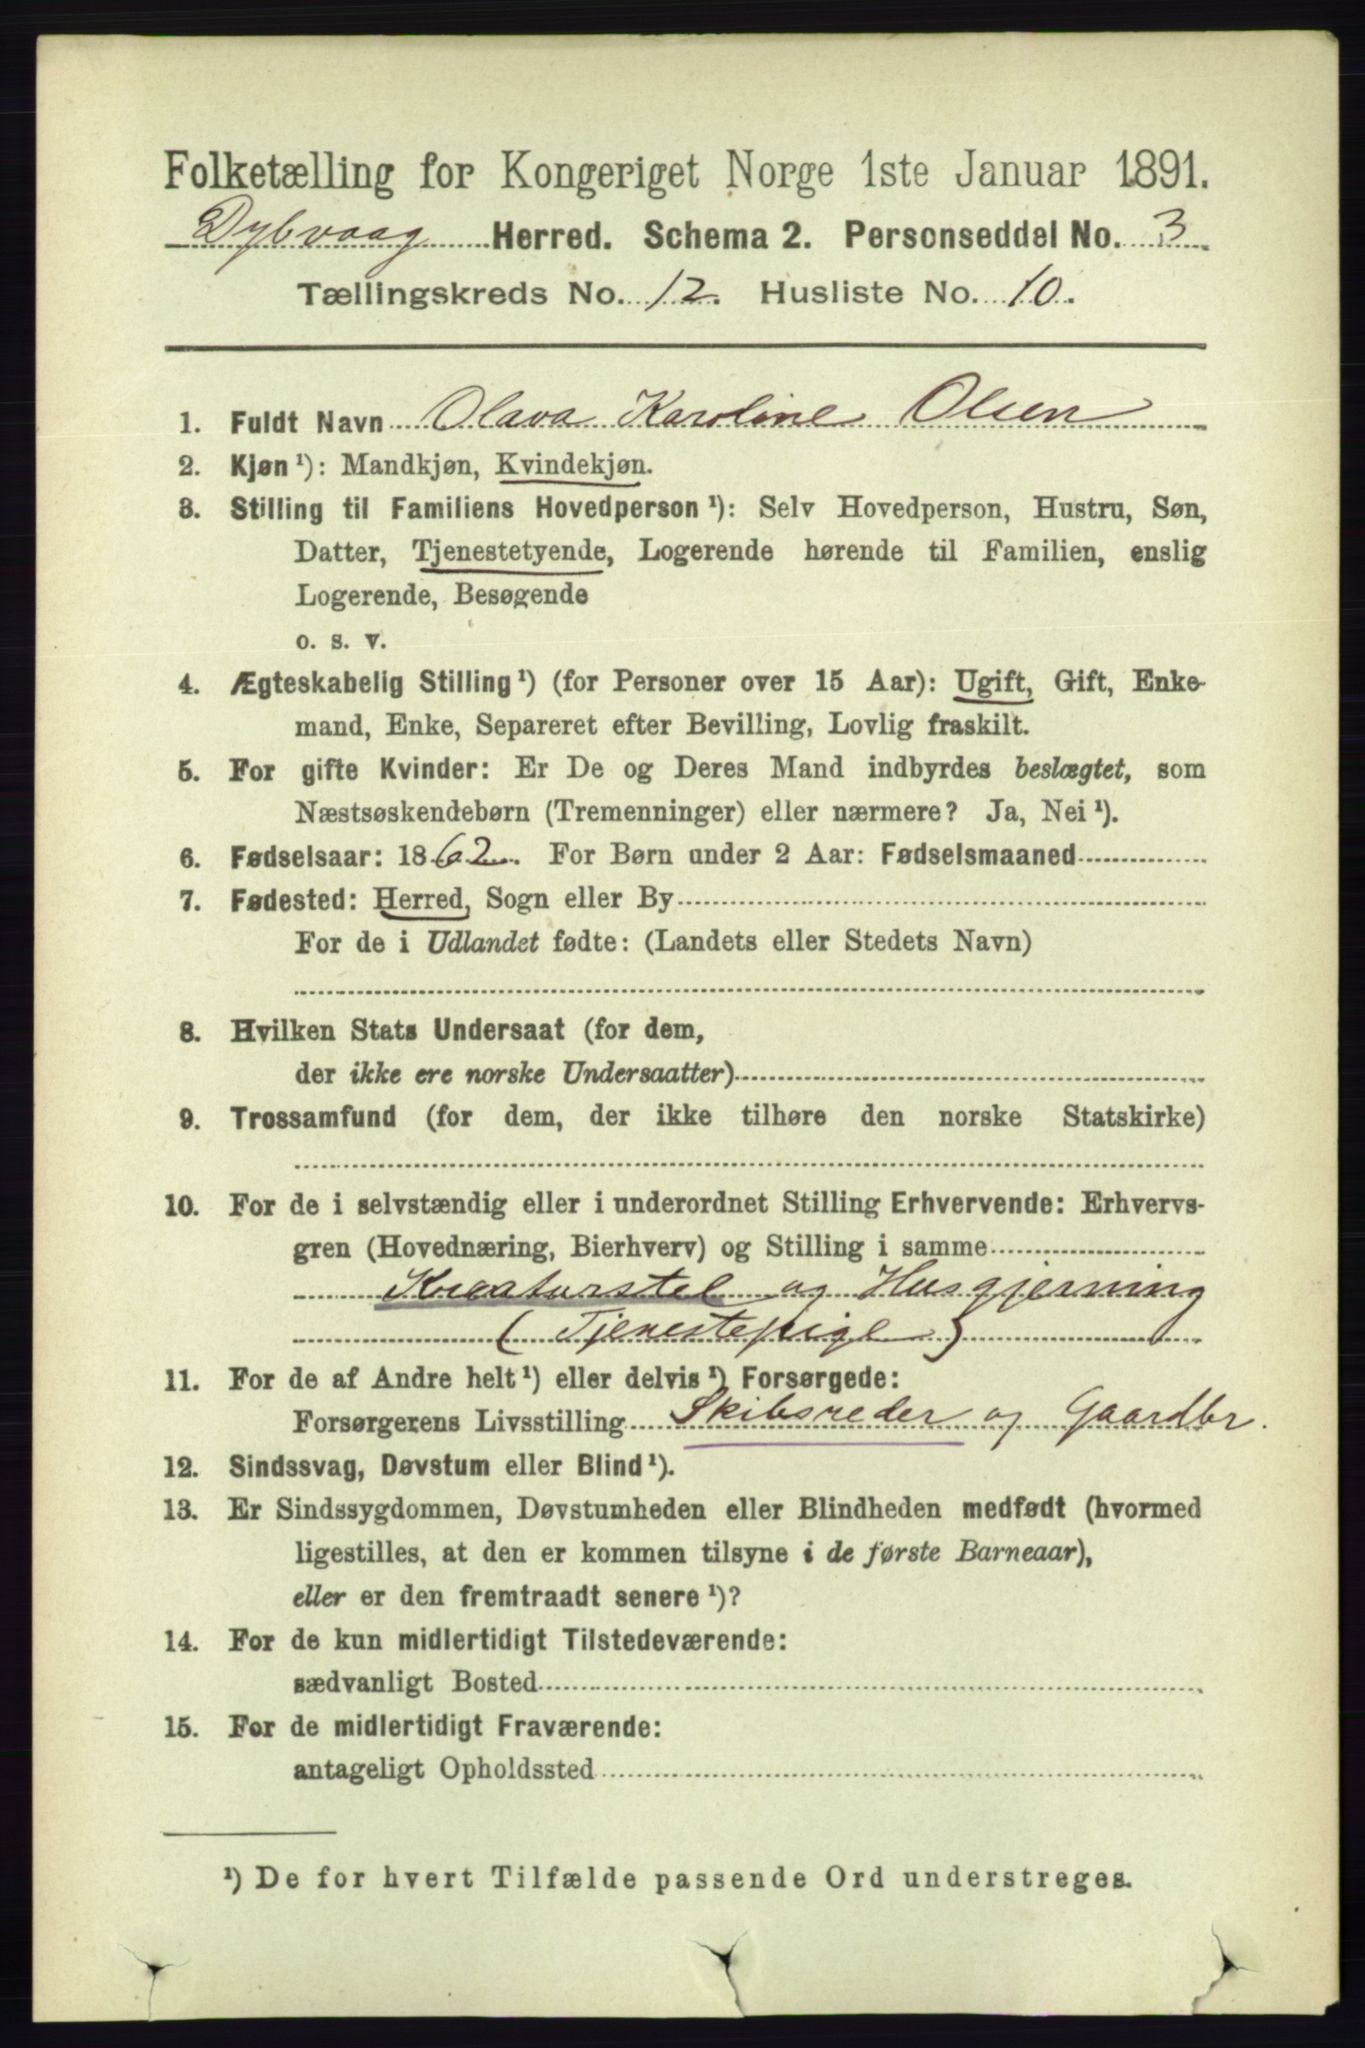 Folketælling for Kongeriget Norge 1ste Januar 1891.
Dybvaag Herred. Schema 2. Personseddel No. 3
Tællingskreds No. 12. Husliste No. 10.
1. Fuldt Navn Olava Karoline Olsen
2. Kjøn¹): Mandkjøn, Kvindekjøn.
3. Stilling til Familiens Hovedperson¹): Selv Hovedperson, Hustru, Søn,
Datter, Tjenestetyende, Logerende hørende til Familien, enslig
Logerende, Besøgende
o. s. v.
4. Ægteskabelig Stilling¹) (for Personer over 15 Aar): Ugift, Gift, Enke-
mand, Enke, Separeret efter Bevilling, Lovlig fraskilt.
5. For gifte Kvinder: Er De og Deres Mand indbyrdes beslægtet, som
Næstsøskendebørn (Tremenninger) eller nærmere? Ja, Nei¹).
6. Fødselsaar: 1862. For Børn under 2 Aar: Fødselsmaaned
7. Fødested: Herred, Sogn eller By
For de i Udlandet fødte: (Landets eller Stedets Navn)
8. Hvilken Stats Undersaat (for dem,
der ikke ere norske Undersaatter)
9. Trossamfund (for dem, der ikke tilhøre den norske Statskirke)
10. For de i selvstændig eller i underordnet Stilling Erhvervende: Erhvervs-
gren (Hovednæring, Bierhverv) og Stilling i samme
Kreaturstel og Husgjerning
(Tjenestepige)
11. For de af Andre helt¹) eller delvis¹) Forsørgede:
Forsørgerens Livsstilling Skibsreder og Gaardbr.
12. Sindssvag, Døvstum eller Blind¹).
13. Er Sindssygdommen, Døvstumheden eller Blindheden medfødt (hvormed
ligestilles, at den er kommen tilsyne i de første Barneaar),
eller er den fremtraadt senere¹)?
14. For de kun midlertidigt Tilstedeværende:
sædvanligt Bosted
15. For de midlertidigt Fraværende:
antageligt Opholdssted
¹) De for hvert Tilfælde passende Ord understreges.